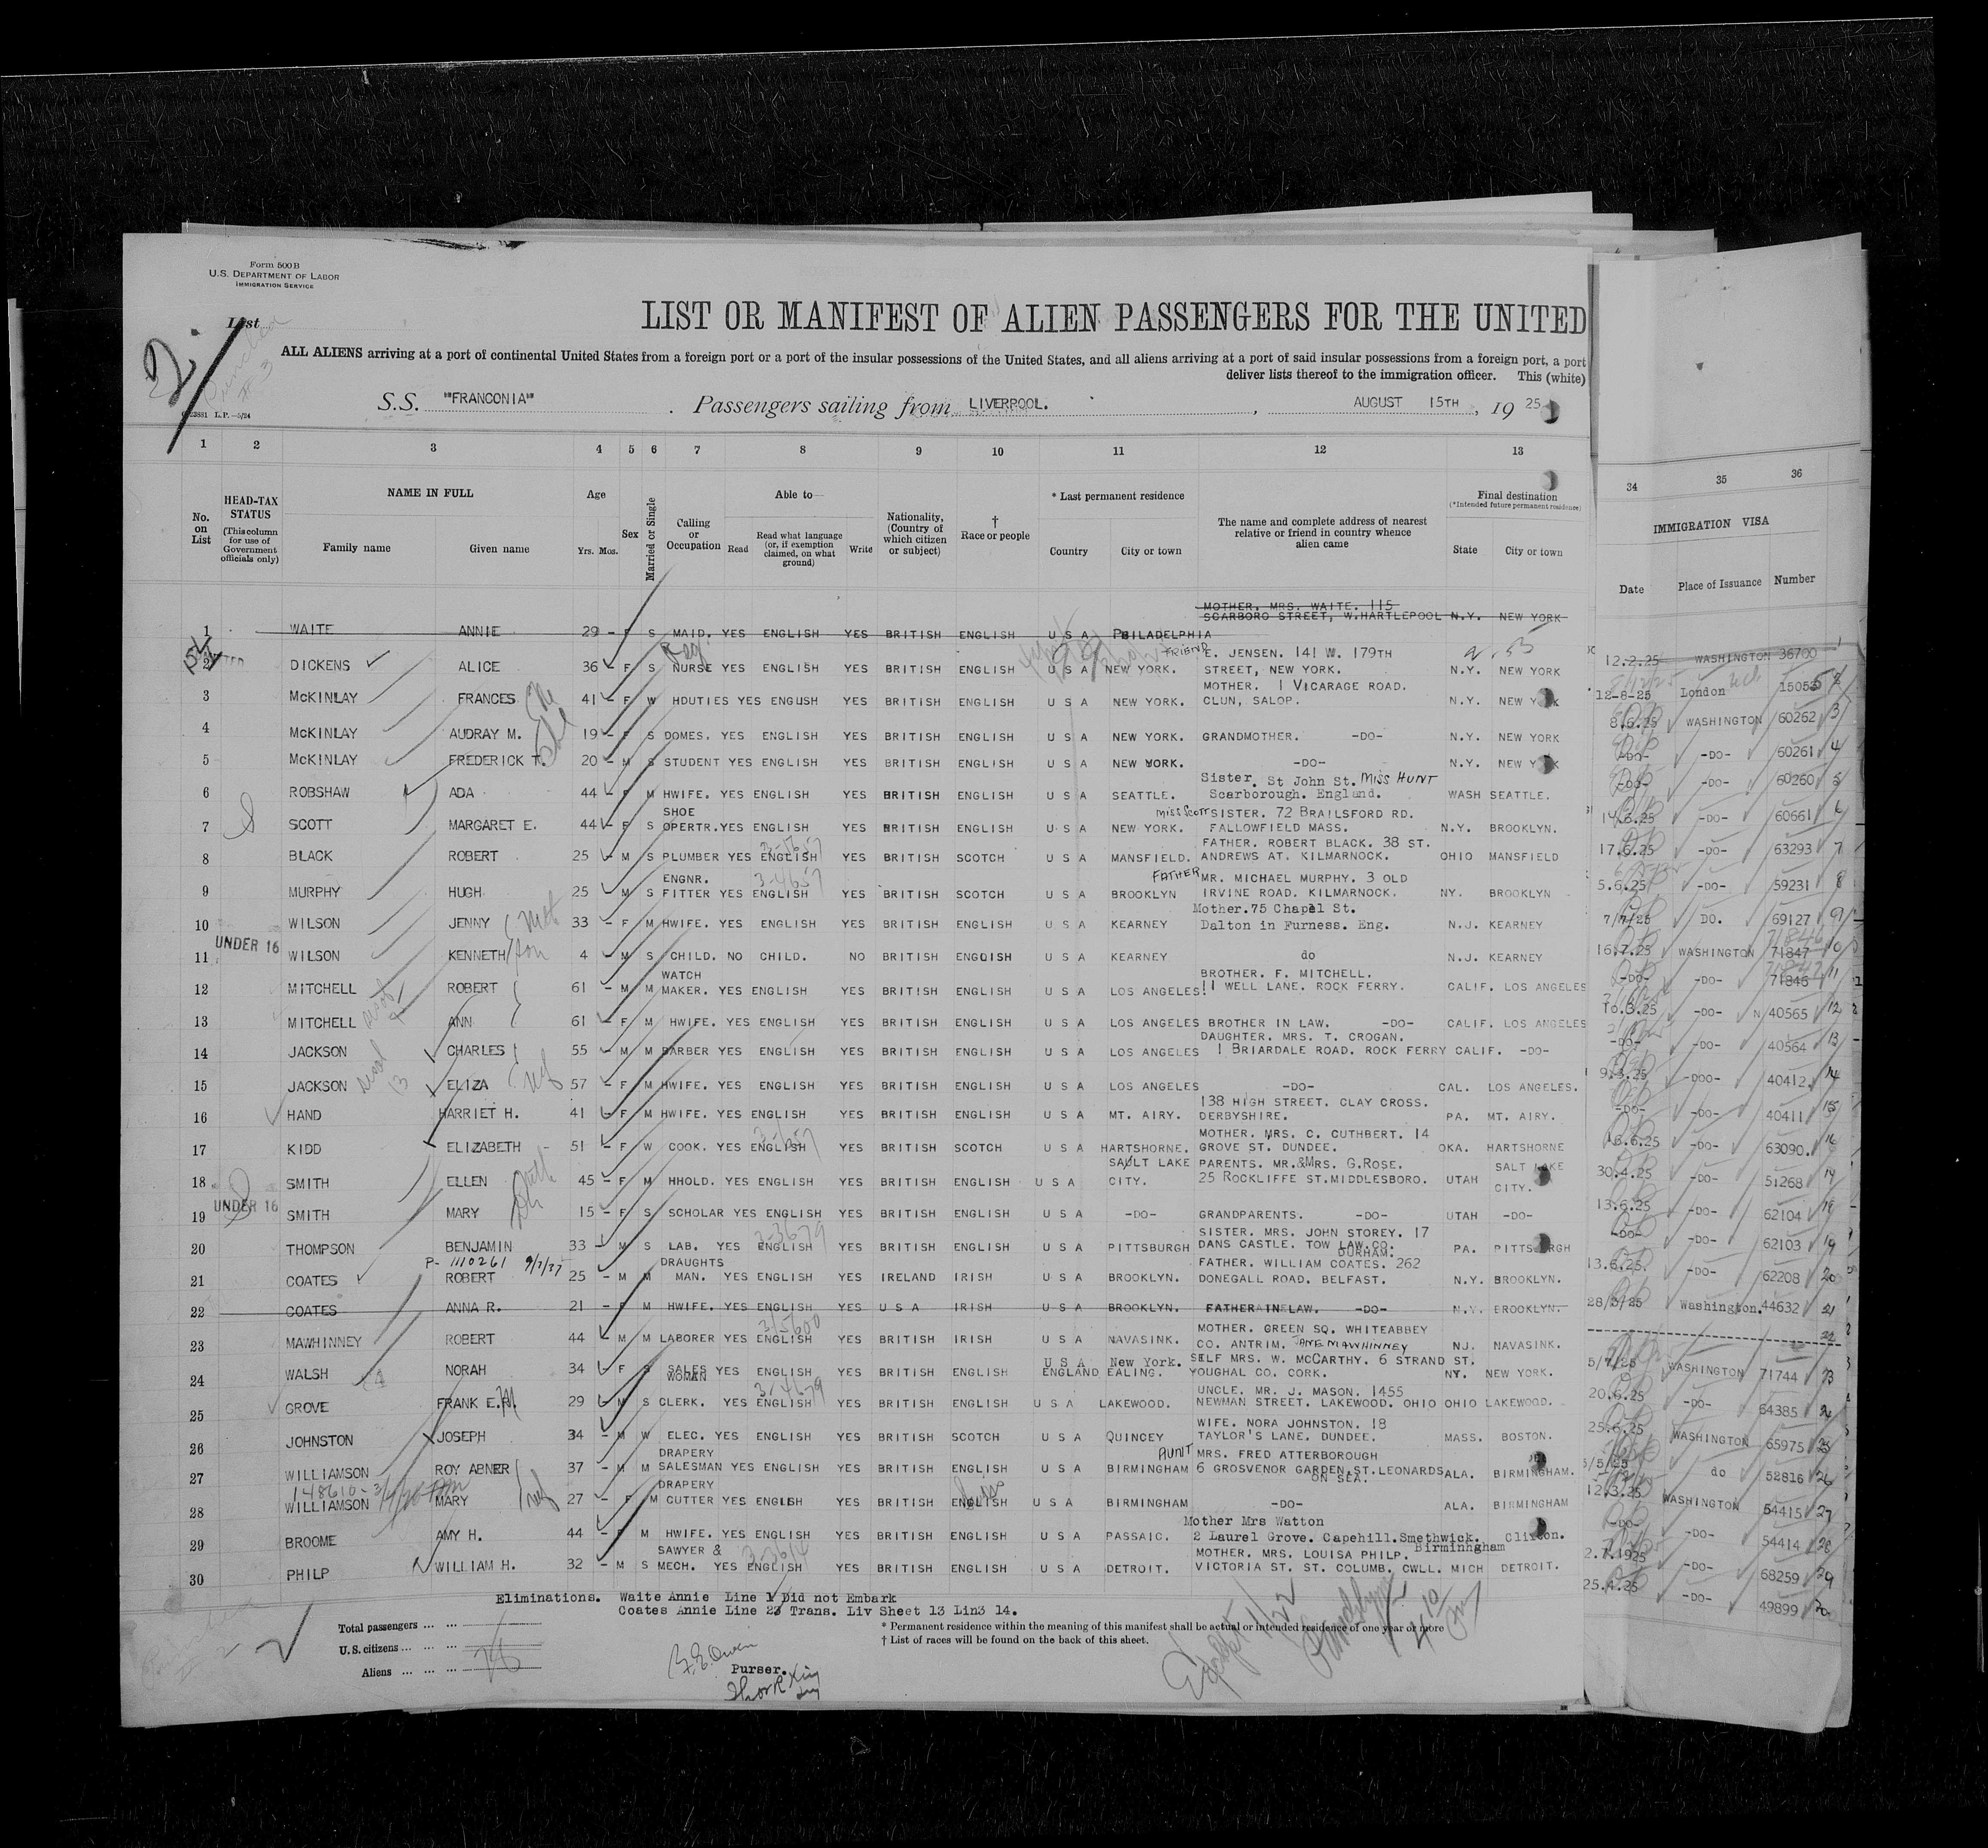 Form 500B
U.S. DEPARTMENT OF LABOR
IMMIGRATION SERVICE
List
LIST OR MANIFEST OF ALIEN PASSENGERS FOR THE UNITED
ALL ALIENS arriving at a port of continental United States from a foreign port or a port of the insular possessions of the United States, and all aliens arriving at a port of said insular possessions from a foreign port, a port
deliver lists thereof to the immigration officer. This (white)
S.S. "FRANCONIA" . Passengers sailing from LIVERPOOL. , AUGUST 15TH , 19 25
L.P.—5/24
1 2 3 4 5 6 7 8 9 10 11 12 13 34 35 36
No. on List
HEAD-TAX STATUS (This column for use of Government officials only)
NAME IN FULL Family name Given name
Age Yrs. Mos.
Sex
Married or Single
Calling or Occupation
Able to— Read Read what language (or, if exemption claimed, on what ground) Write
Nationality, (Country of which citizen or subject)
† Race or people
* Last permanent residence Country City or town
The name and complete address of nearest relative or friend in country whence alien came
Final destination (*Intended future permanent residence) State City or town
IMMIGRATION VISA Date Place of Issuance Number
MOTHER. MRS. WAITE. 115
1 WAITE ANNIE 29 - F S MAID. YES ENGLISH YES BRITISH ENGLISH U S A PHILADELPHIA SCARBORO STREET, W.HARTLEPOOL N.Y. NEW YORK 12.2.25 WASHINGTON 36700
2 DICKENS ALICE 36 - F S NURSE YES ENGLISH YES BRITISH ENGLISH U S A NEW YORK. FRIEND E. JENSEN. 141 W. 179TH STREET, NEW YORK. N.Y. NEW YORK 12-8-25 London 15055
3 McKINLAY FRANCES 41 - F W HDUTIES YES ENGUSH YES BRITISH ENGLISH U S A NEW YORK. MOTHER. 1 VICARAGE ROAD. CLUN, SALOP. N.Y. NEW YORK 8.6.25 WASHINGTON 60262 3
4 McKINLAY AUDRAY M. 19 - F S DOMES. YES ENGLISH YES BRITISH ENGLISH U S A NEW YORK. GRANDMOTHER. -DO- N.Y. NEW YORK -DO- -DO- 60261 4
5 McKINLAY FREDERICK T. 20 - M S STUDENT YES ENGLISH YES BRITISH ENGLISH U S A NEW YORK. -DO- N.Y. NEW YORK -DO- -DO- 60260 5
6 ROBSHAW ADA 44 - F M HWIFE. YES ENGLISH YES BRITISH ENGLISH U S A SEATTLE. Sister. St John St. MISS HUNT Scarborough. England. WASH SEATTLE. 14.6.25 -DO- 60661 6
7 SCOTT MARGARET E. 44 - F S SHOE OPERTR. YES ENGLISH YES BRITISH ENGLISH U S A NEW YORK. Miss Scott SISTER. 72 BRAILSFORD RD. FALLOWFIELD MASS. N.Y. BROOKLYN. 17.6.25 -DO- 63293 7
8 BLACK ROBERT 25 - M S PLUMBER YES ENGLISH YES BRITISH SCOTCH U S A MANSFIELD. FATHER. ROBERT BLACK. 38 ST. ANDREWS AT. KILMARNOCK. OHIO MANSFIELD 5.6.25 -DO- 59231 8
9 MURPHY HUGH 25 - M S ENGNR. FITTER YES ENGLISH YES BRITISH SCOTCH U S A BROOKLYN FATHER MR. MICHAEL MURPHY. 3 OLD IRVINE ROAD. KILMARNOCK. NY. BROOKLYN 7/7/25 DO. 69127 9
10 WILSON JENNY 33 - F M HWIFE. YES ENGLISH YES BRITISH ENGLISH U S A KEARNEY Mother. 75 Chapel St. Dalton in Furness. Eng. N.J. KEARNEY 16.7.25 WASHINGTON 71847 10
UNDER 16
11 WILSON KENNETH son 4 - M S CHILD. NO CHILD. NO BRITISH ENGOISH U S A KEARNEY do N.J. KEARNEY -DO- -DO- 71846 11
12 MITCHELL ROBERT 61 - M M WATCH MAKER. YES ENGLISH YES BRITISH ENGLISH U S A LOS ANGELES. BROTHER. F. MITCHELL. 11 WELL LANE. ROCK FERRY. CALIF. LOS ANGELES 10.3.25 -DO- N 40565 12
13 MITCHELL ANN 61 - F M HWIFE. YES ENGLISH YES BRITISH ENGLISH U S A LOS ANGELES BROTHER IN LAW. -DO- CALIF. LOS ANGELES -DO- -DO- 40564 13
14 JACKSON CHARLES 55 - M M BARBER YES ENGLISH YES BRITISH ENGLISH U S A LOS ANGELES DAUGHTER. MRS. T. CROGAN. 1 BRIARDALE ROAD. ROCK FERRY CALIF. -DO- 9.3.25 -DOO- 40412 14
15 JACKSON ELIZA 57 - F M HWIFE. YES ENGLISH YES BRITISH ENGLISH U S A LOS ANGELES -DO- CAL. LOS ANGELES. -DO- -DO- 40411 15
16 HAND HARRIET H. 41 - F M HWIFE. YES ENGLISH YES BRITISH ENGLISH U S A MT. AIRY. 138 HIGH STREET. CLAY CROSS. DERBYSHIRE. PA. MT. AIRY. 16.6.25 -DO- 63090. 16
17 KIDD ELIZABETH 51 - F W COOK. YES ENGLISH YES BRITISH SCOTCH U S A HARTSHORNE. MOTHER. MRS. C. CUTHBERT. 14 GROVE ST. DUNDEE. OKA. HARTSHORNE 30.4.25 -DO- 51268 17
18 SMITH ELLEN 45 - F M HHOLD. YES ENGLISH YES BRITISH ENGLISH U S A SAULT LAKE CITY. PARENTS. MR.&MRS. G.ROSE. 25 ROCKLIFFE ST.MIDDLESBORO. UTAH SALT LAKE CITY. 13.6.25 -DO- 62104 18
UNDER 16
19 SMITH MARY 15 - F S SCHOLAR YES ENGLISH YES BRITISH ENGLISH U S A -DO- GRANDPARENTS. -DO- UTAH -DO- -DO- -DO- 62103 19
20 THOMPSON BENJAMIN 33 - M S LAB. YES ENGLISH YES BRITISH ENGLISH U S A PITTSBURGH SISTER. MRS. JOHN STOREY. 17 DANS CASTLE. TOW LAW. CO. DURHAM. PA. PITTSBURGH 13.6.25. -DO- 62208 20
P- 1110261 9/7/37
21 COATES ROBERT 25 - M M DRAUGHTS MAN. YES ENGLISH YES IRELAND IRISH U S A BROOKLYN. FATHER. WILLIAM COATES. 262 DONEGALL ROAD. BELFAST. N.Y. BROOKLYN. 28/3/25 Washington. 44632 21
22 COATES ANNA R. 21 - F M HWIFE. YES ENGLISH YES U S A IRISH U S A BROOKLYN. FATHER IN LAW. -DO- N.Y. BROOKLYN. 22
23 MAWHINNEY ROBERT 44 - M M LABORER YES ENGLISH YES BRITISH IRISH U S A NAVASINK. MOTHER. GREEN SQ. WHITEABBEY CO. ANTRIM. JANE MAWHINNEY NJ. NAVASINK. 5/7/25 WASHINGTON 71744 23
24 WALSH NORAH 34 F S SALES WOMAN YES ENGLISH YES BRITISH ENGLISH U S A ENGLAND New York. EALING. SELF MRS. W. McCARTHY. 6 STRAND ST. YOUGHAL CO. CORK. NY. NEW YORK. 20.6.25 -DO- 64385 24
25 GROVE FRANK E. 29 M S CLERK. YES ENGLISH YES BRITISH ENGLISH U S A LAKEWOOD. UNCLE. MR. J. MASON. 1455 NEWMAN STREET. LAKEWOOD. OHIO OHIO LAKEWOOD. 25.6.25 WASHINGTON 65975 25
26 JOHNSTON JOSEPH 34 - M W ELEC. YES ENGLISH YES BRITISH SCOTCH U S A QUINCEY WIFE. NORA JOHNSTON. 18 TAYLOR'S LANE. DUNDEE. MASS. BOSTON. 5/5/25 do 52816 26
27 WILLIAMSON ROY ABNER 37 - M M DRAPERY SALESMAN YES ENGLISH YES BRITISH ENGLISH U S A BIRMINGHAM AUNT MRS. FRED ATTERBOROUGH 6 GROSVENOR GARDEN.ST.LEONARDS ON SEA. ALA. BIRMINGHAM. 12.3.25 WASHINGTON 54415 27
148610
28 WILLIAMSON MARY 27 - F M DRAPERY CUTTER YES ENGLISH YES BRITISH ENGLISH U S A BIRMINGHAM -DO- ALA. BIRMINGHAM -DO- -DO- 54414 28
29 BROOME AMY H. 44 - F M HWIFE. YES ENGLISH YES BRITISH ENGLISH U S A PASSAIC. Mother Mrs Watton 2 Laurel Grove. Capehill. Smethwick. Birminhgham Clifton. 2.7.1925 -DO- 68259 29
30 PHILP WILLIAM H. 32 - M S SAWYER & MECH. YES ENGLISH YES BRITISH ENGLISH U S A DETROIT. MOTHER. MRS. LOUISA PHILP. VICTORIA ST. ST. COLUMB. CWLL. MICH DETROIT. 25.4.25 -DO- 49899
Eliminations. Waite Annie Line 1 Did not Embark
Coates Annie Line 23 Trans. Liv Sheet 13 Lin3 14.
Total passengers ... ...
U.S. citizens ... ... ...
Aliens ... ... ...
* Permanent residence within the meaning of this manifest shall be actual or intended residence of one year or more
† List of races will be found on the back of this sheet.
Purser.